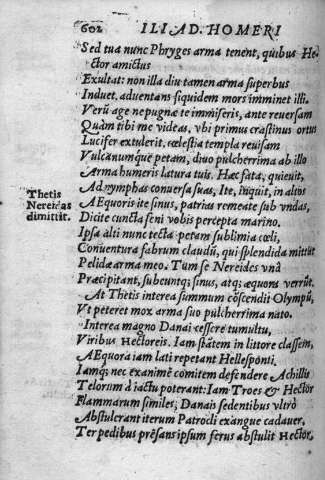 602 ILIAD. HOMERI
Sed tua nunc Phryges arma tenent, quibus He-
ctor amictus
Exultat: non illa diu tamen arma superbus
Induet, aduentans siquidem mors imminet illi.
Verũ age ne pugnæ te immiseris, ante reuersam
Quàm tibi me videas, vbi primus crastinus ortus
Lucifer extulerit, cœlestia templa reuisam
Vulcanumque petam, diuo pulcherrima ab illo
Arma humeris latura tuis. Hæc fata, quieuit,
Ad nymphas conuersa suas, Ite, inquit, in altos
Thetis
Nereidas
dimittit.
AEquoris ite sinus, patrias remeate sub vndas,
Dicite cuncta seni vobis percepta marino.
Ipsa alti nunc tecta petam sublimia cœli,
Conuentura fabrum claudũ, qui splendida mittat
Pelidæ arma meo. Tum se Nereides vnà
Præcipitant, subeuntq; sinus, atq; æquora verrũt.
At Thetis interea summum cõscendit Olympũ,
Vt peteret mox arma suo pulcherrima nato.
Interea magno Danai cessere tumultu,
Viribus Hectoreis. Iam statem in littore classem,
AEquora iam lati repetant Hellesponti.
Iamq; nec exanimẽ comitem defendere Achillis
Telorum à iactu poterant: Iam Troes & Hector
Flammarum similes, Danais sedentibus vltrò
Abstulerant iterum Patrocli exangue cadauer,
Ter pedibus prẽsans ipsum ferus abstulit Hector,